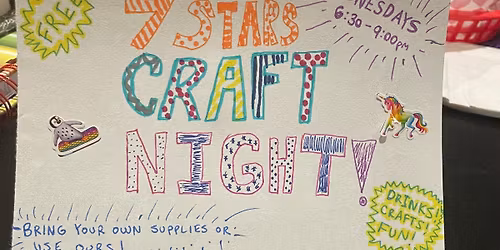 FREE
7 STARS
WEDNESDAYS
6:30-9:00pm
CRAFT
NIGHT!
BRING YOUR OWN SUPPLIES OR
USE OURS!
DRINKS!
CRAFTS!
FUN!